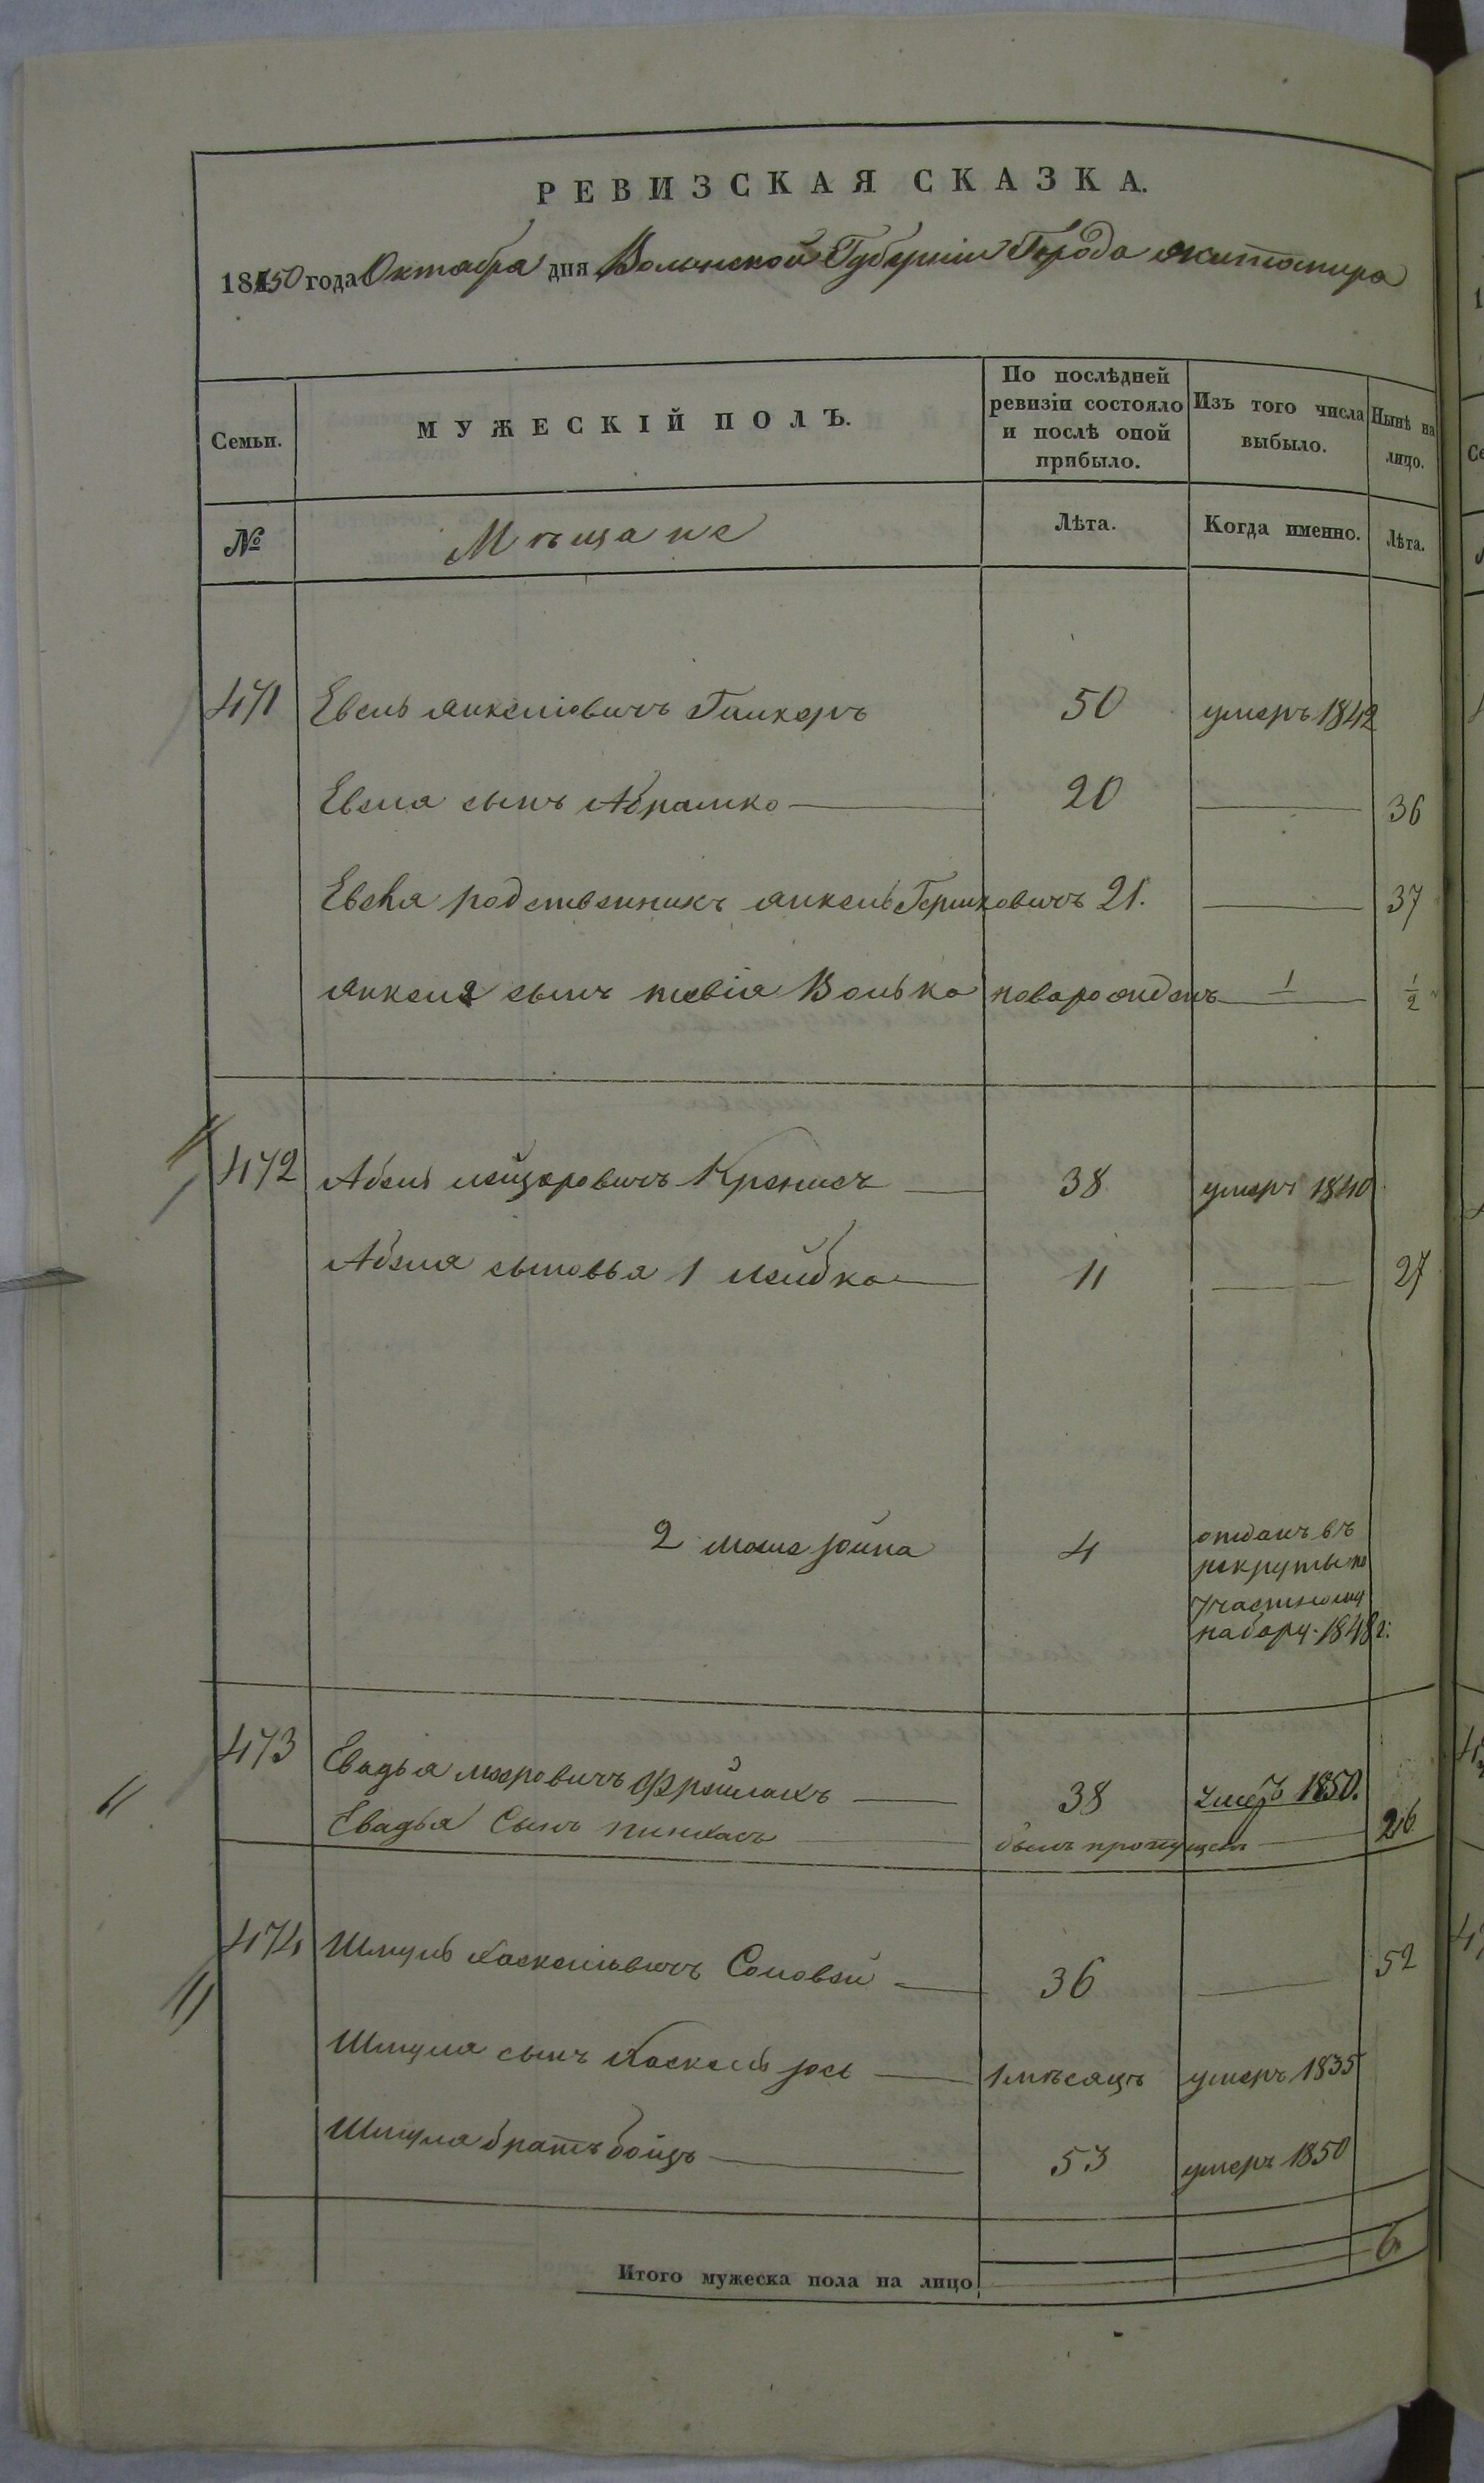 РЕВИЗСКАЯ СКАЗКА.
1850 года Октабра дня Волынской Губерніи Города Житомира
Семьи.
МУЖЕСКІЙ ПОЛЪ.
По послѣдней ревизіи состояло и послѣ оной прибыло.
Изъ того числа выбыло.
Нынѣ на лицо.
№
Мѣщане
Лѣта.
Когда именно.
Лѣта.
471 Евель Янкелiовичъ Галкеръ 50 умеръ 1842
Евеля сынъ Абрамко 20 36
Евеля родственникъ Янкель Гершковичъ 21. 37
Янкеля сынъ тевія Волько новорожденъ 1/2
472 Абель лейзеровичъ Крепись 38 умеръ 1840
Абеля сыновья 1 лейбко 11 27
2 Моше Іойна 4 отданъ въ
рекруты по
Участному
набору. 1848 г:
473 Евадья меэровичъ Фрейлахъ 38 умеръ 1850.
Евадья Сынъ пинхасъ былъ пропущен 26
474 Шмуль Хаскельовичъ Соловей 36 52
Шмуля сынъ Хаскель Іось 1 мѣсяцъ умеръ 1835
Шмуля братъ бойзъ 53 умеръ 1850
Итого мужеска пола на лицо 6